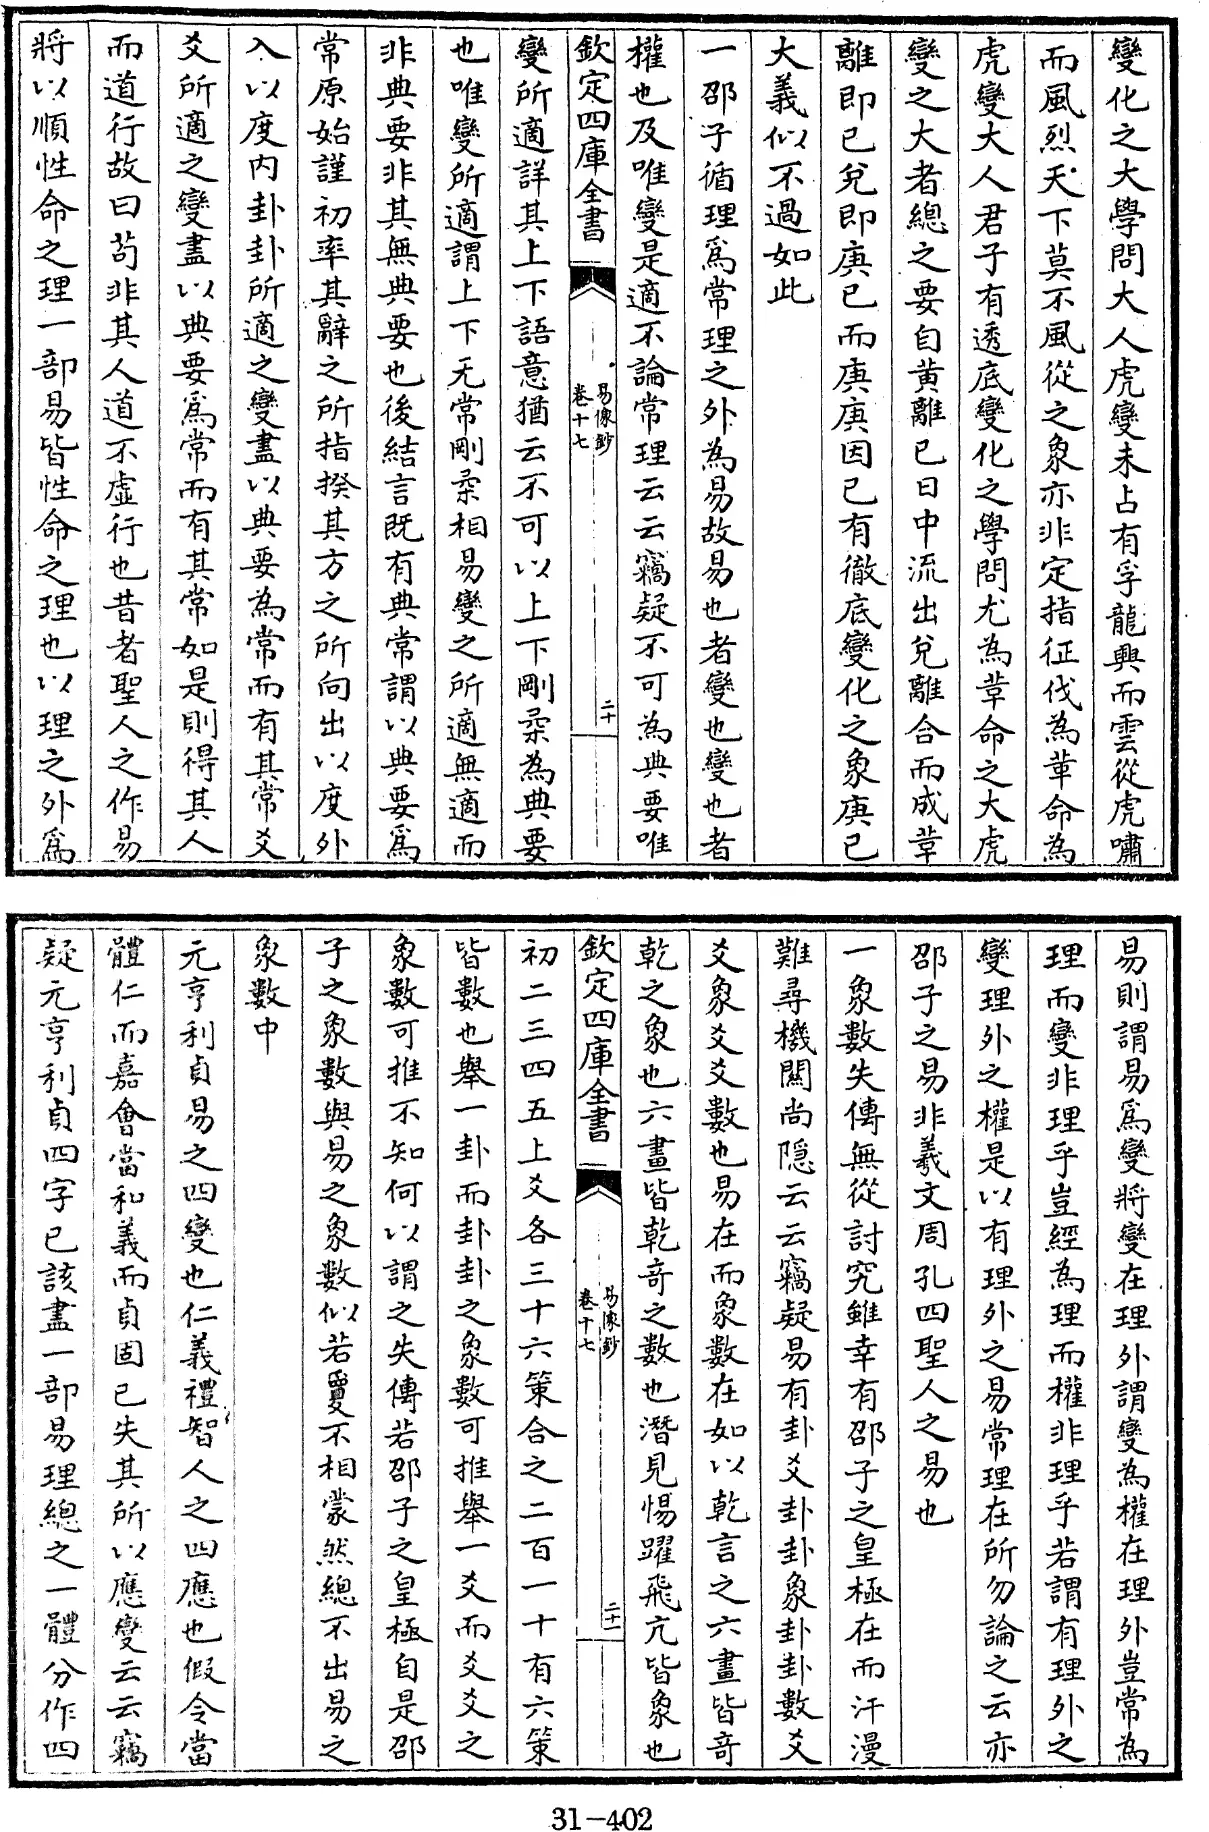 變化之大學問大人虎變未占有孚龍興而雲從虎嘯
而風烈天下莫不風從之象亦非定指征伐為革命為
虎變大人君子有透底變化之學問尤為革命之大虎
變之大者總之要自黃離已日中流出兌離合而成革
離即已兌即庚已而庚庚因已有徹底變化之象庚已
大義似不過如此
一邵子循理爲常理之外為易故易也者變也變也者
權也及唯變是適不論常理云云竊疑不可為典要唯
欽定四庫全書
易像鈔
卷十七
二十
變所適詳其上下語意猶云不可以上下剛柔為典要
也唯變所適謂上下无常剛柔相易變之所適無適而
非典要非其無典要也後結言既有典常謂以典要爲
常原始謹初率其辭之所指揆其方之所向出以度外
入以度内卦卦所適之變盡以典要為常而有其常爻
爻所適之變盡以典要爲常而有其常如是則得其人
而道行故曰苟非其人道不虛行也昔者聖人之作易
將以順性命之理一部易皆性命之理也以理之外爲
易則謂易爲變將變在理外謂變為權在理外豈常為
理而變非理乎豈經為理而權非理乎若謂有理外之
變理外之權是以有理外之易常理在所勿論之云亦
邵子之易非羲文周孔四聖人之易也
一象數失傳無從討究雖幸有邵子之皇極在而汗漫
難尋機關尚隱云云竊疑易有卦爻卦卦象卦卦數爻
爻象爻爻數也易在而象數在如以乾言之六畫皆奇
乾之象也六畫皆乾奇之數也潛見惕躍飛亢皆象也
欽定四庫全書
易像鈔
卷十七
二十一
初二三四五上爻各三十六策合之二百一十有六策
皆數也舉一卦而卦卦之象數可推舉一爻而爻爻之
象數可推不知何以謂之失傳若邵子之皇極自是邵
子之象數與易之象數似若夐不相蒙然總不出易之
象數中
元亨利貞易之四變也仁義禮智人之四應也假令當
體仁而嘉會當和義而貞固已失其所以應變云云竊
疑元亨利貞四字已該盡一部易理總之一體分作四
31-402